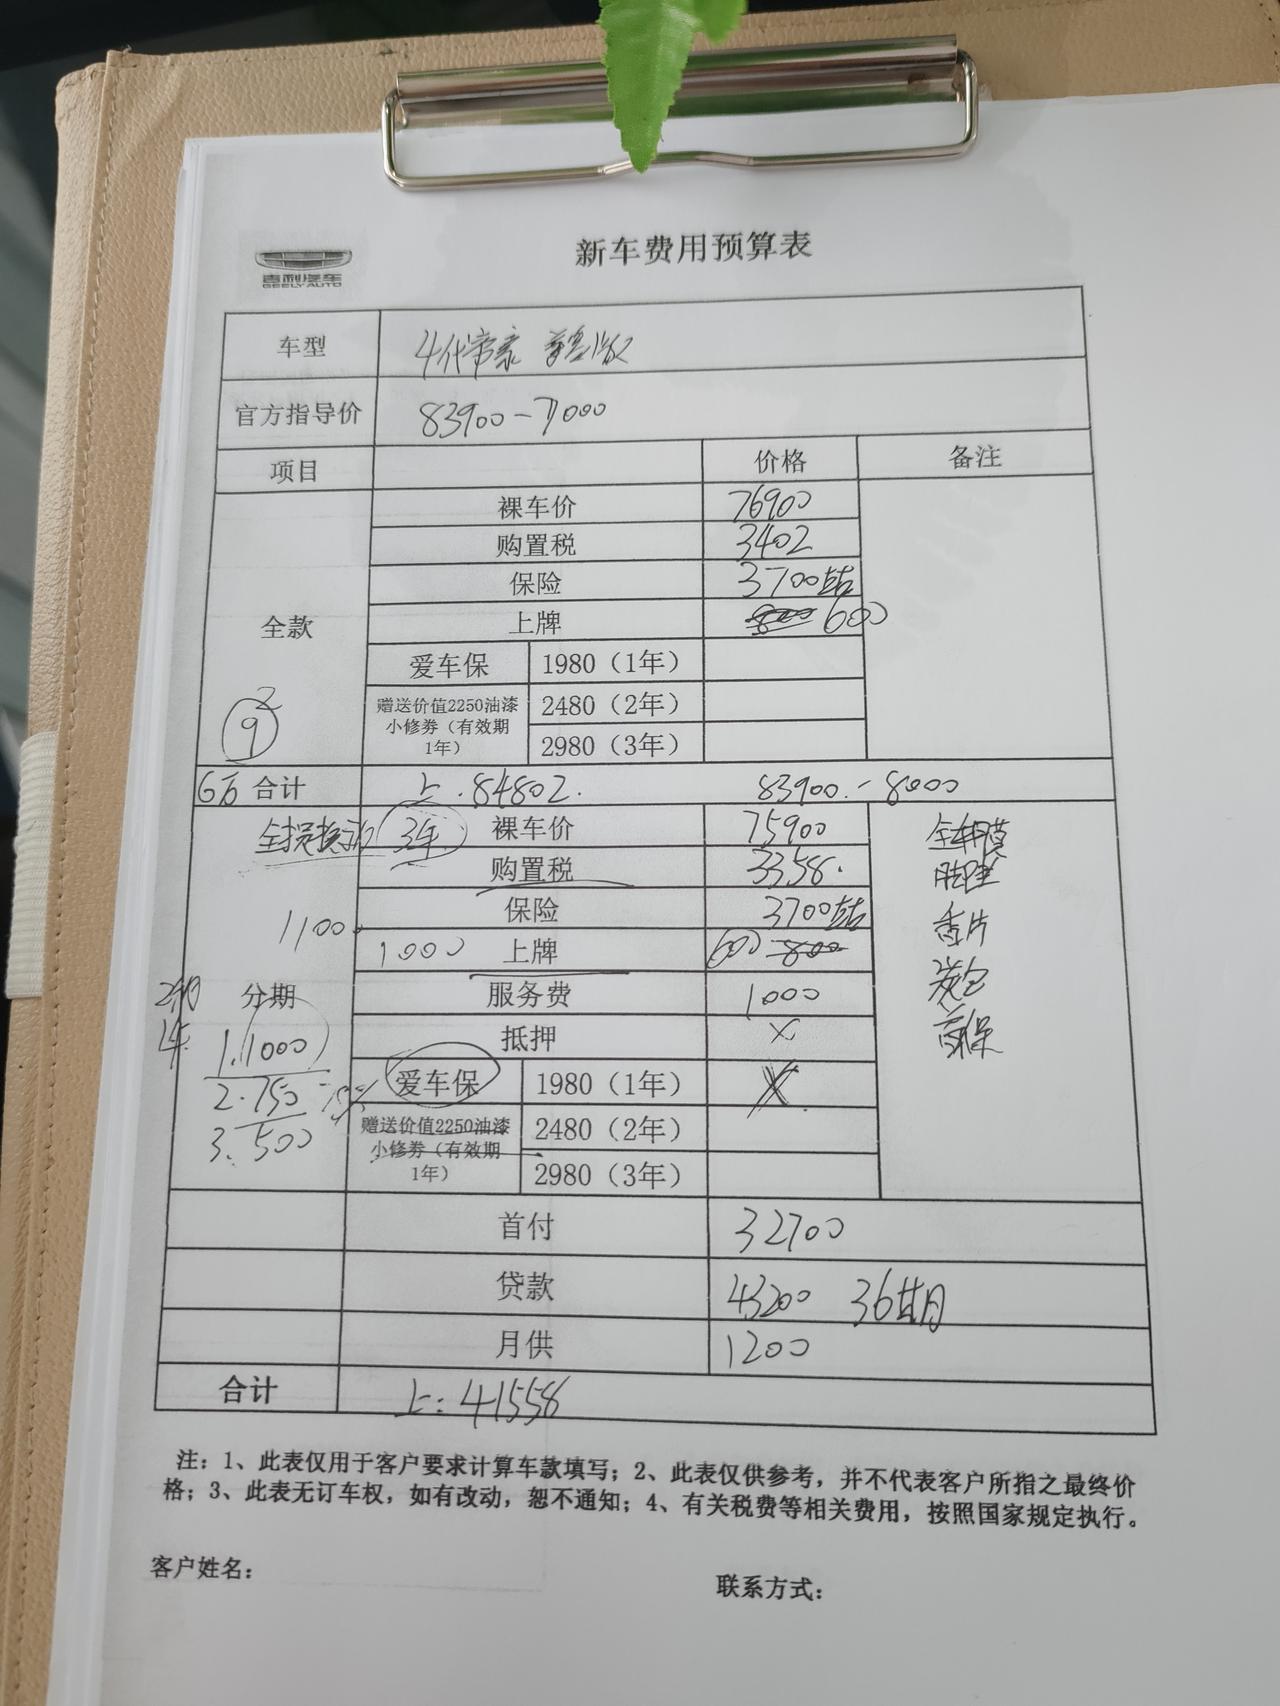 吉利汽车
GEELY AUTO
新车费用预算表
车型 4代帝豪 尊贵版
官方指导价 83900-7000
项目 价格 备注
全款 裸车价 76900
购置税 3402
保险 3700左右
上牌 600
爱车保 1980（1年）
赠送价值2250油漆小修券（有效期1年） 2480（2年）
2980（3年）
9 2
6万 合计 上.84802. 83900.-8000
3年 裸车价 75900 全车膜
购置税 3358. 脚垫
保险 3700左右 香片
1100
1000 上牌 600 800 炭包
分期 服务费 1000
抵押 × 首保
1.1000
2.750
3.500
爱车保 1980（1年） ×
赠送价值2250油漆小修券（有效期1年） 2480（2年）
2980（3年）
首付 32700
贷款 43200 36期
月供 1200
合计 上:41558
注：1、此表仅用于客户要求计算车款填写；2、此表仅供参考，并不代表客户所指之最终价
格；3、此表无订车权，如有改动，恕不通知；4、有关税费等相关费用，按照国家规定执行。
客户姓名：
联系方式：